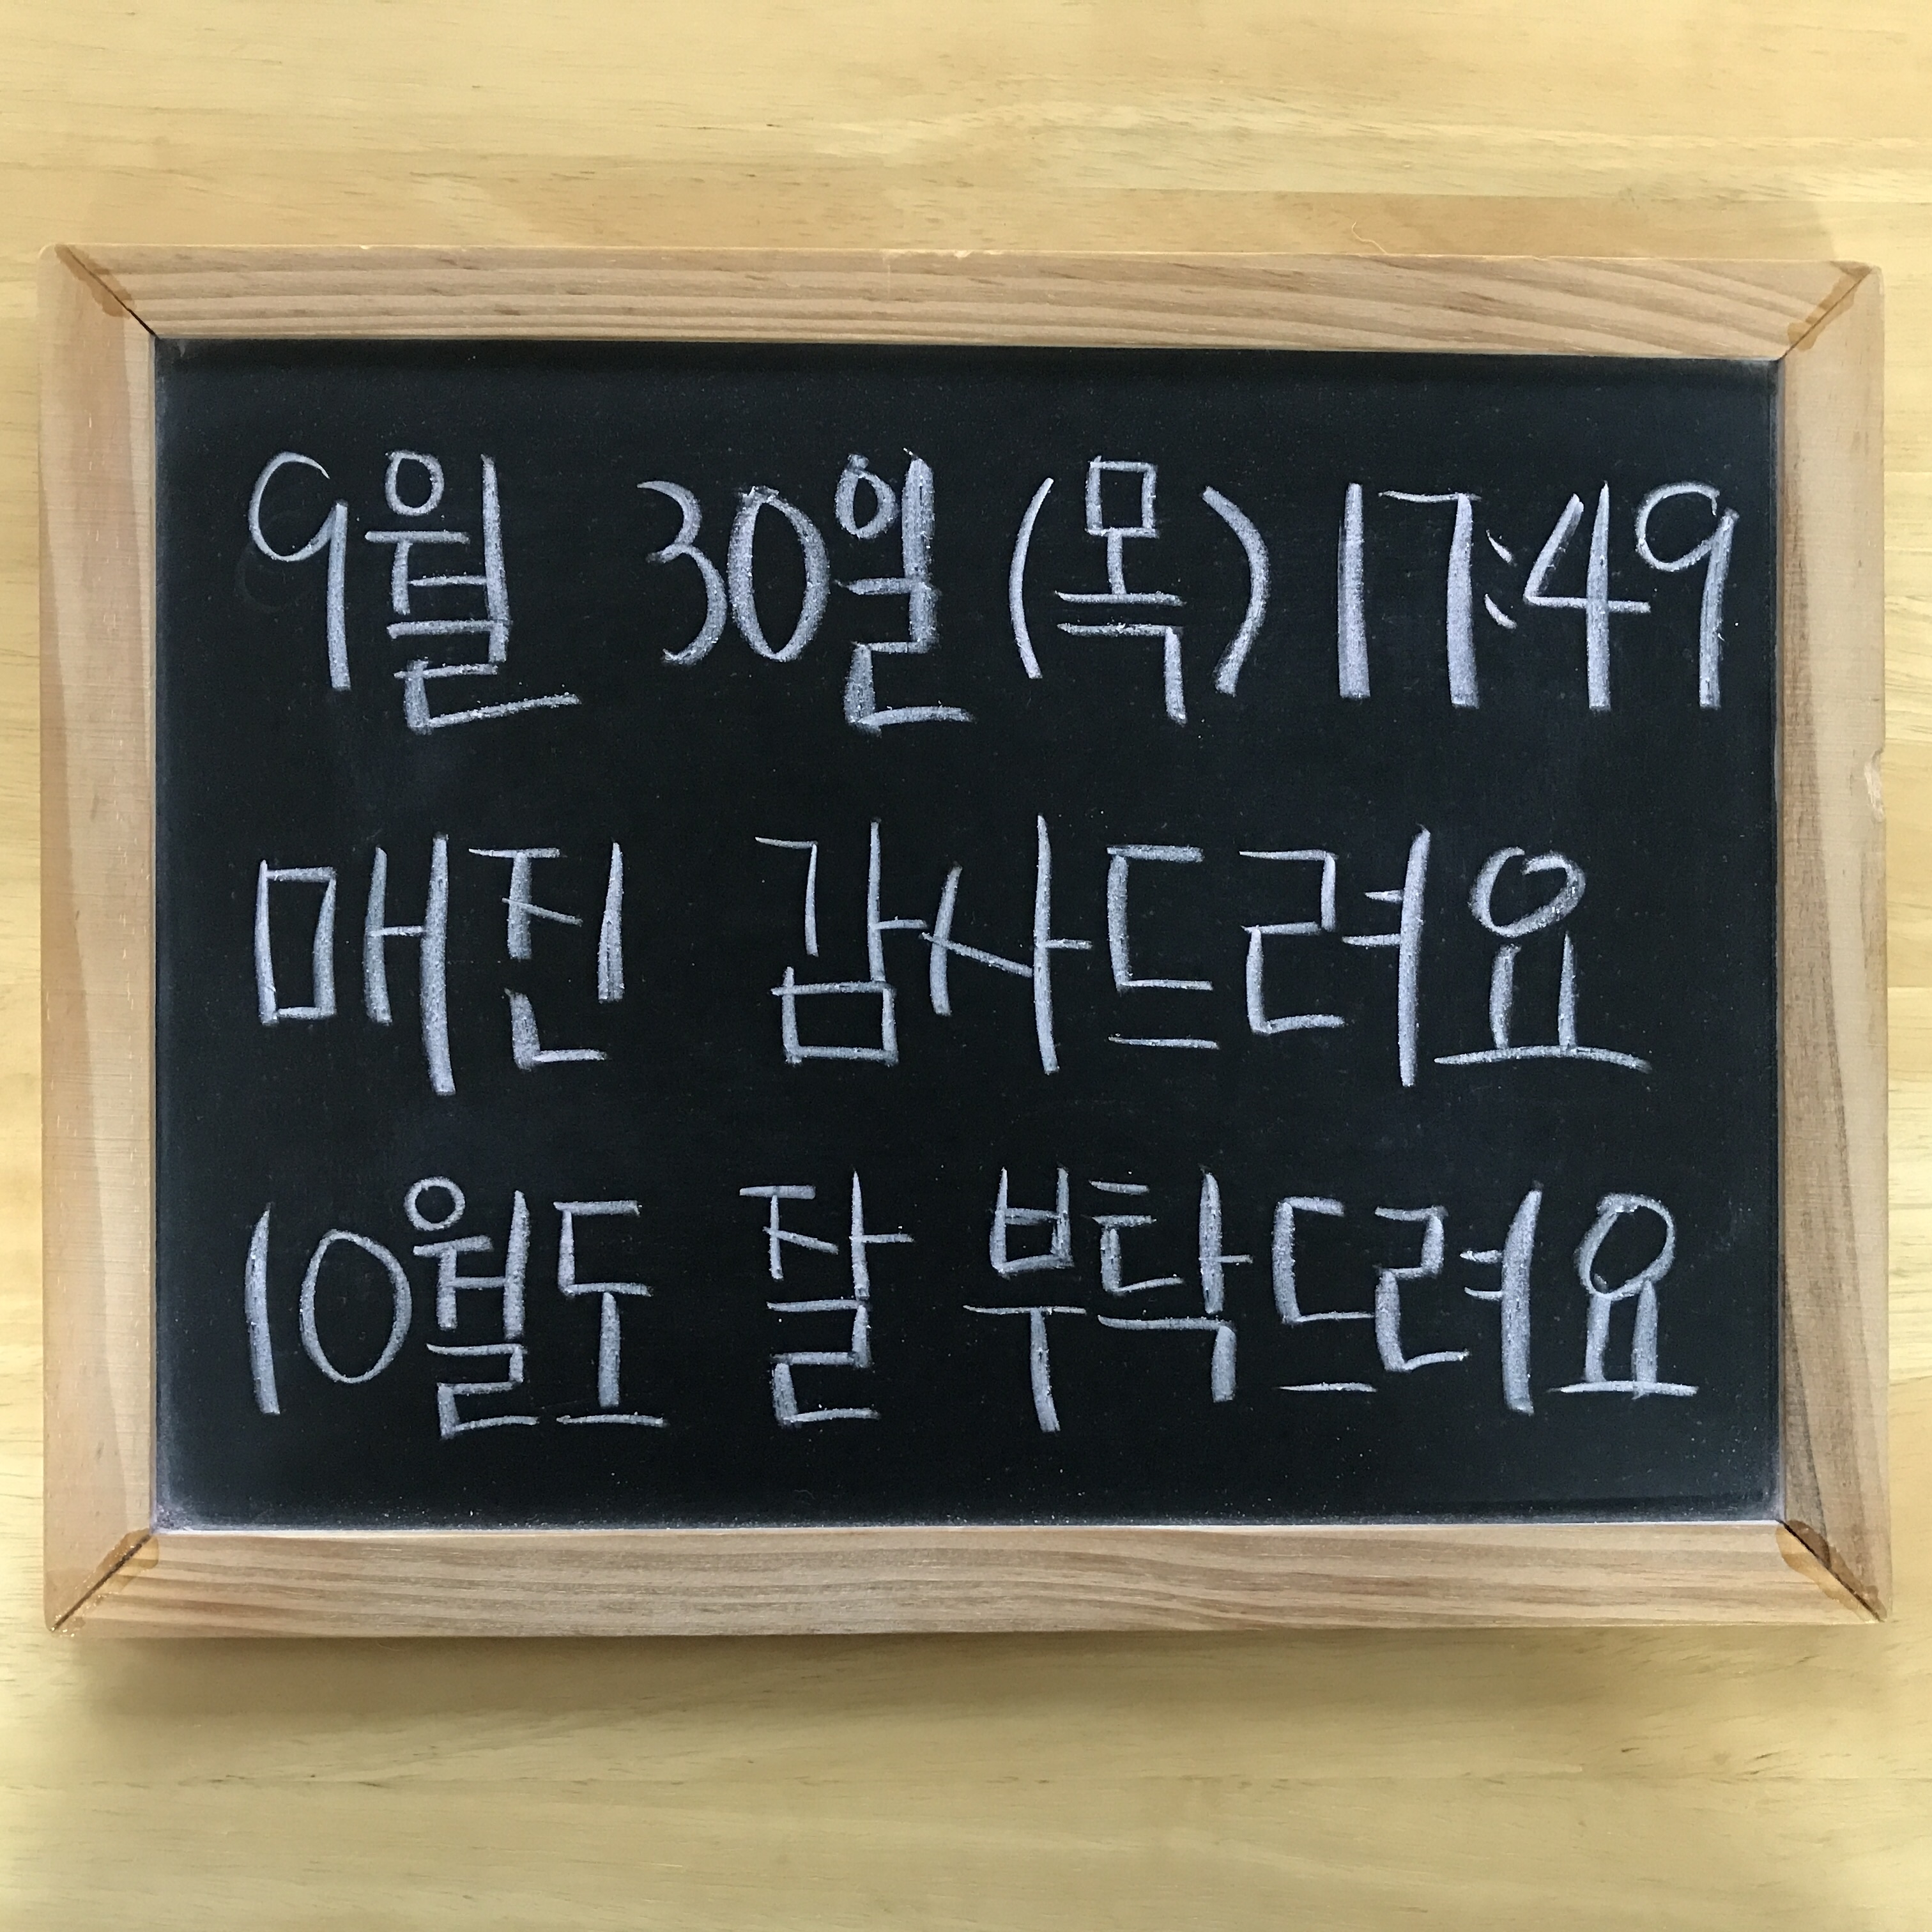 9월 30일(목) 17:49
매진 감사드려요
10월도 잘 부탁드려요